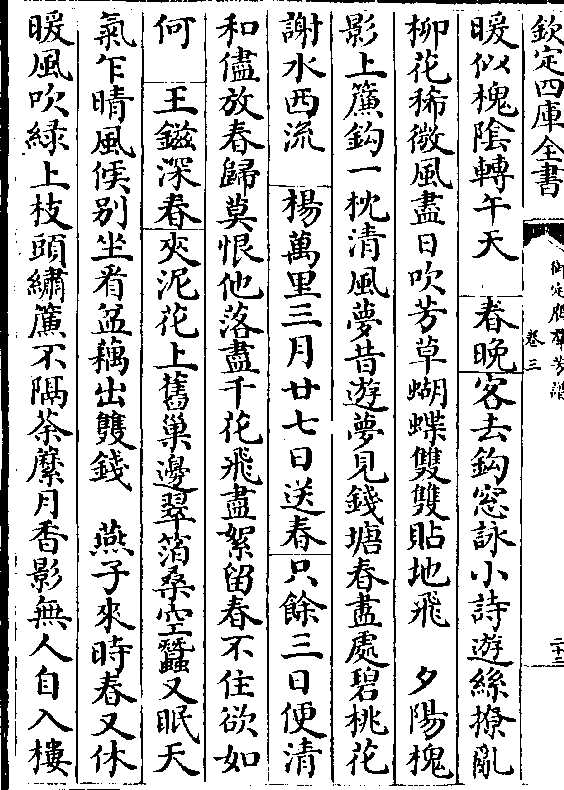 欽定四庫全書
御定佩文齋廣羣芳譜
卷三
二十二
暖似槐隂轉午天　春晚客去鈎窓詠小詩遊絲撩亂
柳花稀微風盡日吹芳草蝴蝶雙雙貼地飛　夕陽槐
影上簾鈎一枕清風夢昔遊夢見錢塘春盡處碧桃花
謝水西流　楊萬里三月廿七日送春只餘三日便清
和儘放春歸莫恨他落盡千花飛盡絮留春不住欲如
何　王鎡深春夾泥花上舊巢邊翠箔桑空蠶又眠天
氣乍晴風候别坐看盆藕出雙錢　燕子來時春又休
暖風吹緑上枝頭繡簾不隔荼䕷月香影無人自入樓